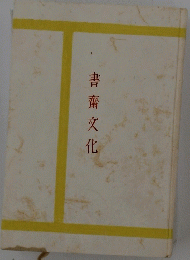 書齋文化